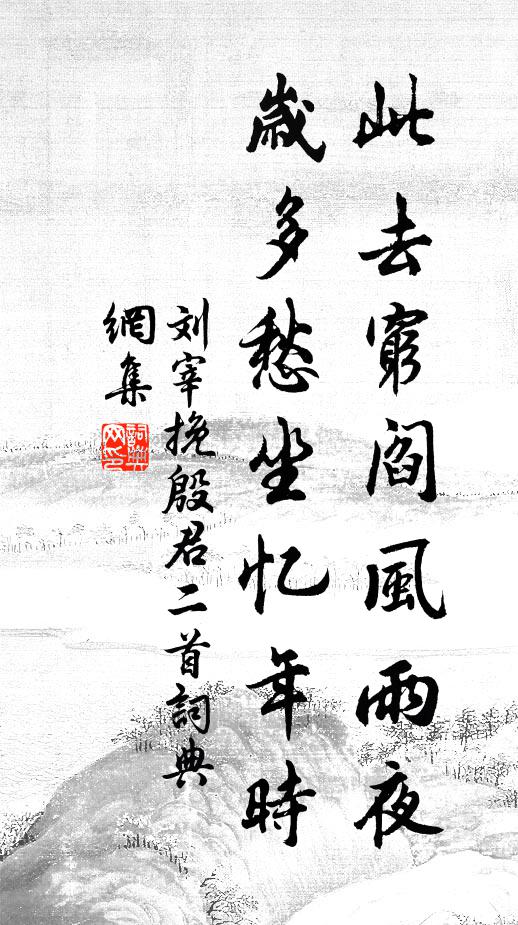 此去窮閻風雨夜
歲多愁坐忆年時
刘宰挽殷君二首詞典
網集